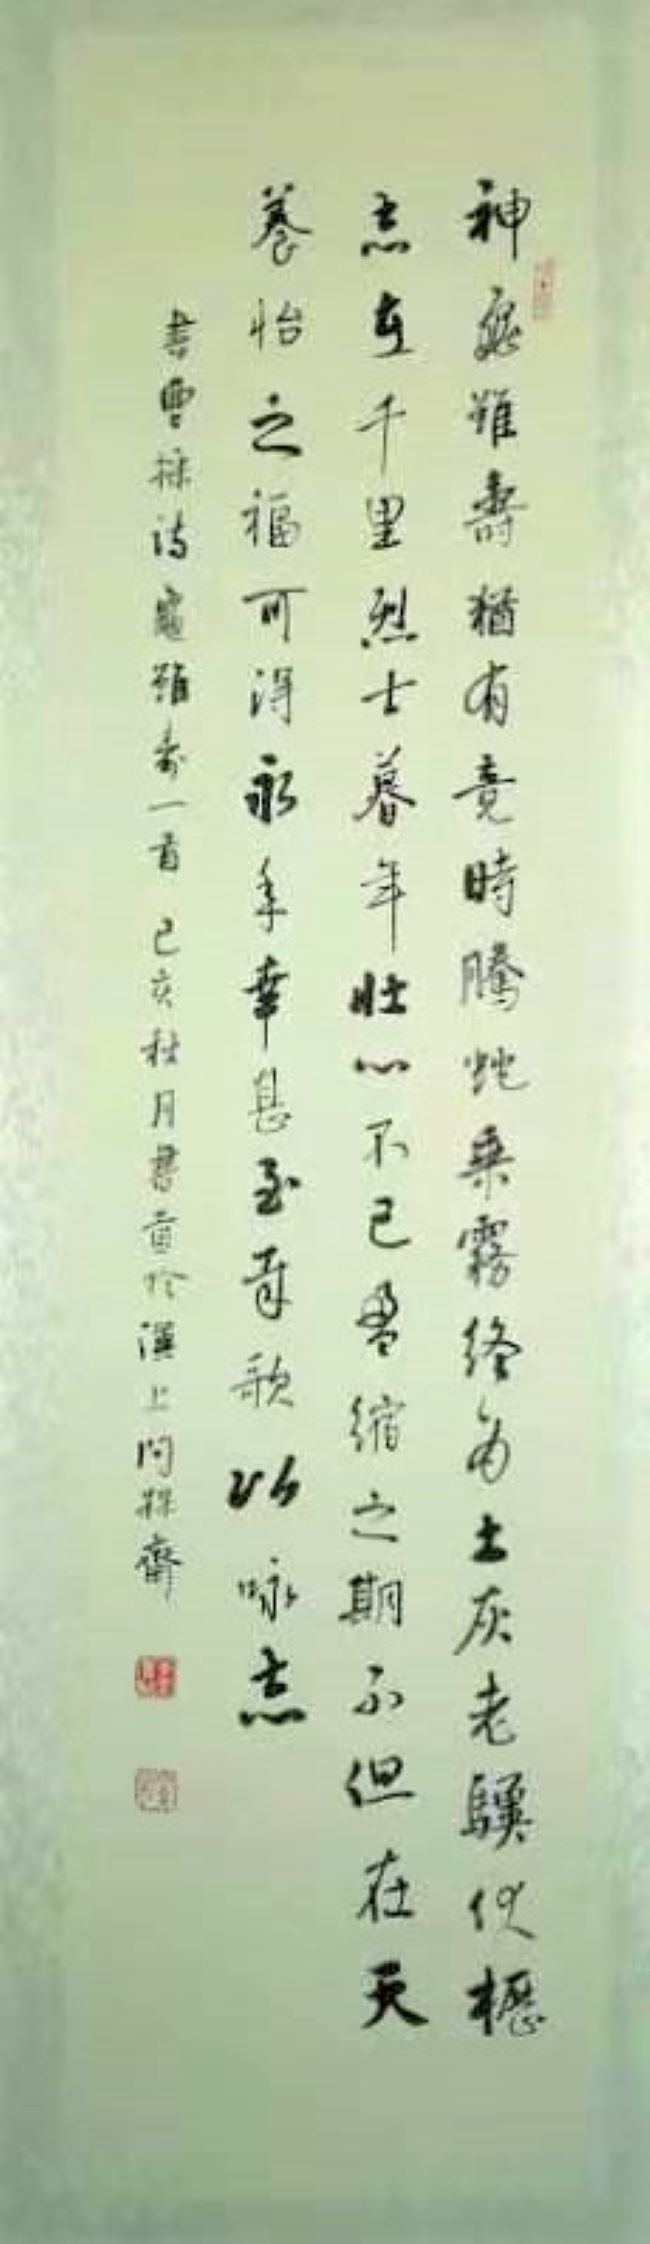 神龜雖壽猶有竟時騰蛇乘霧終為土灰老驥伏櫪
志在千里烈士暮年壯心不已盈縮之期不但在天
養怡之福可得永年幸甚至哉歌以咏志
書曹操诗龜雖壽一首 己亥秋月書首於漢上問梅齋